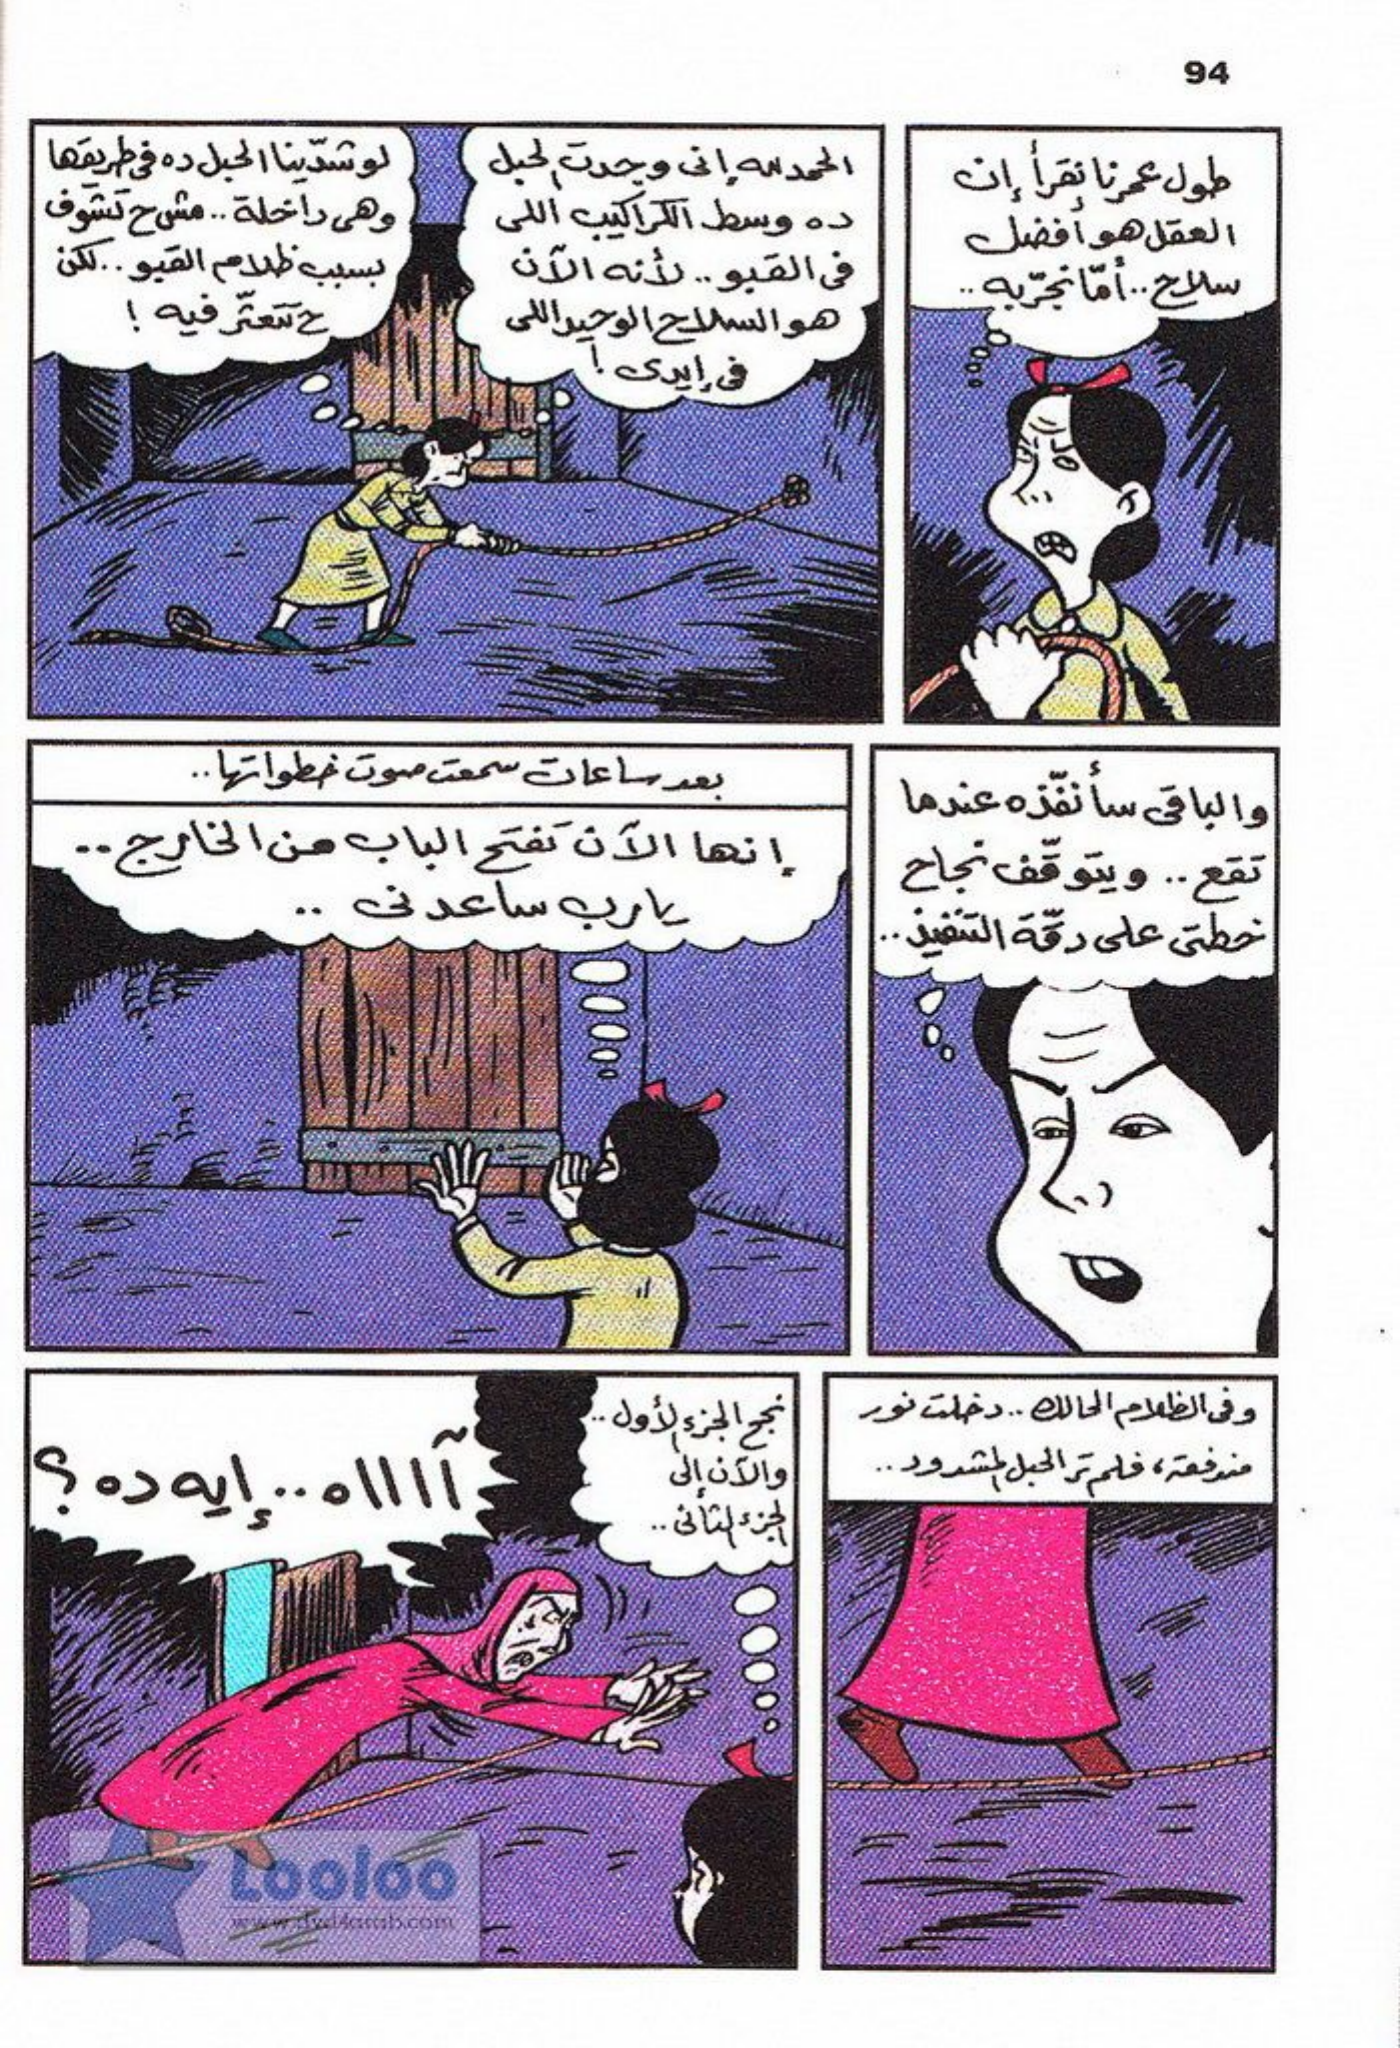 94
طول عمرنا نقرأ إن
العقل هو أفضل
سلاح.. أمّا نجرّبه..
الحمد لله إنى وجدت الحبل
ده وسط الكراكيب اللى
فى القبو.. لأنه الآن
هو السلاح الوحيد اللى
فى إيدى !
لو شدّينا الحبل ده فى طريقها
وهى داخلة.. مش ح تشوف
بسبب ظلام القبو.. لكن
ح تتعثّر فيه !
والباقى سأنفّذه عندما
تقع.. ويتوقّف نجاح
خطتى على دقّة التنفيذ..
بعد ساعات سمعت صوت خطواتها..
إنها الآن تفتح الباب من الخارج..
يارب ساعدنى..
وفى الظلام الحالك.. دخلت نور
مندفعة، فلم تر الحبل المشدود..
نجح الجزء الأول..
والآن إلى
الجزء الثانى..
آااااه.. إيه ده ؟
Looloo
www.dvd4arab.com